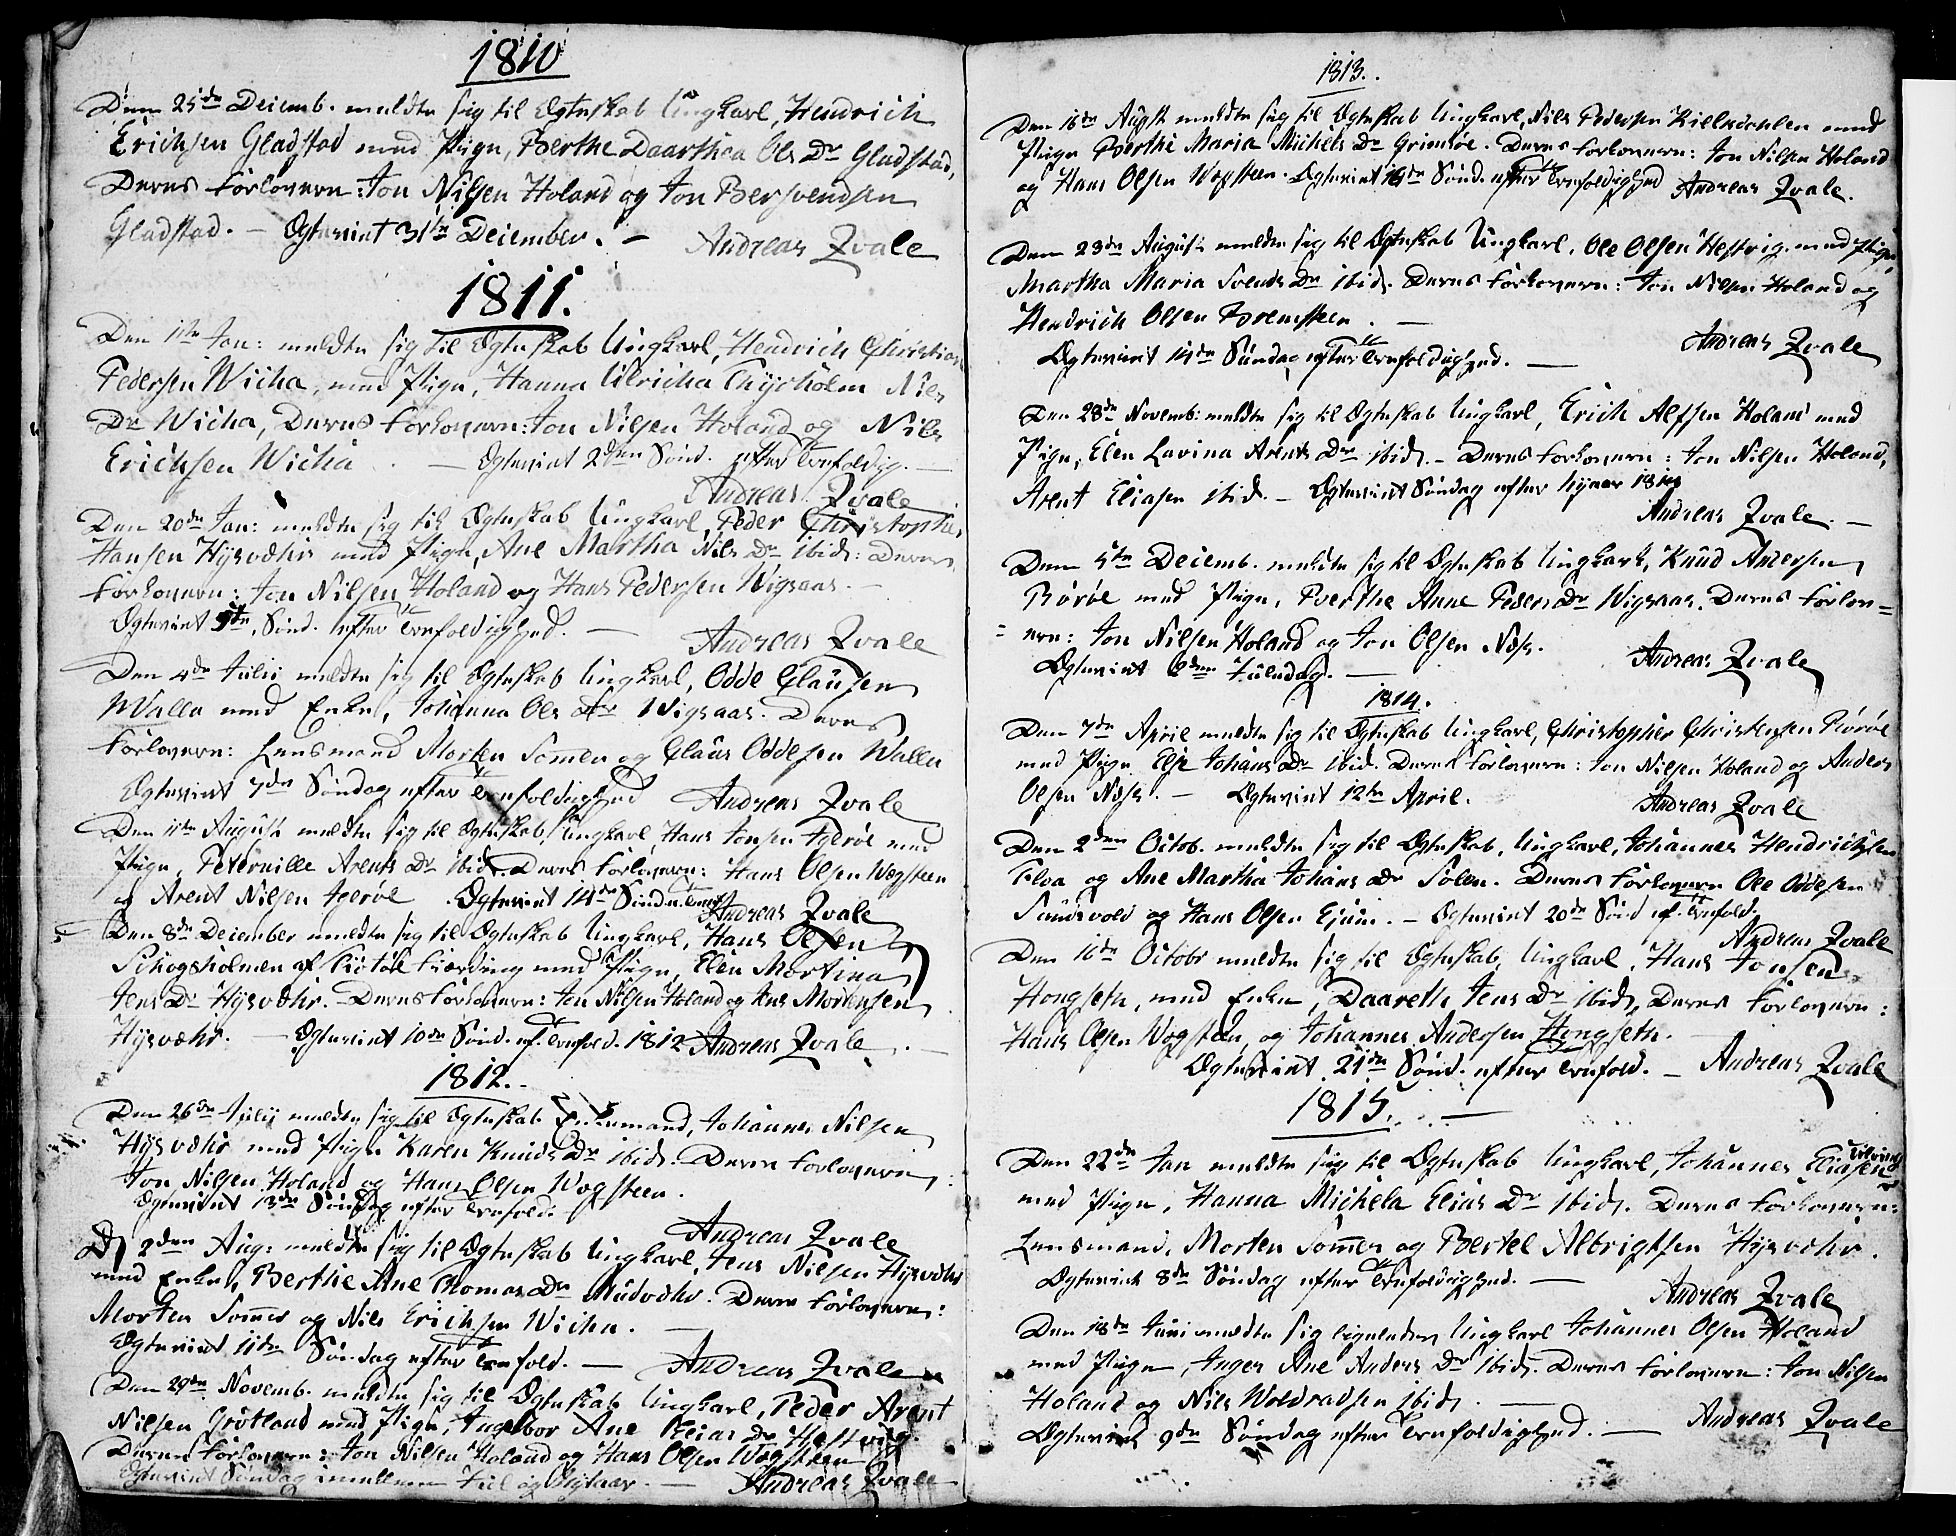 1810
Den 25de Decemb. meldte sig til Ægteskab Ungkarl, Hendrich
Erichsen Gladstad med Pigen, Berthe Daarthea Ols Dr Gladstad,
Deres Forlovere: Jon Nilsen Holand og Jon Bersvendsen
Gladstad. — Ægteviet 31te December. — Andreas Qvale
1811.
Den 11te Jan: meldte sig til Ægteskab Ungkarl, Hendrich Christian
Pedersen Wicha, med Pigen, Hanna Ulricha Thyrholm Nils
Dr Wicha, Deres Forlovere: Jon Nilsen Holand og Nils
Erichsen Wicha. — Ægteviet 2den Sönd. efter Trefoldig. —
Andreas Qvale
Den 20de Jan: meldte sig til Ægteskab Ungkarl, Peder Christopher
Hansen Hysvæhr med Pigen, Ane Martha Nils Dr ibid: Deres
Forlovere: Jon Nilsen Holand og Hans Pedersen Wigsaas. —
Ægteviet 5te Sönd. efter Trefoldighed. — Andreas Qvale
Den 4de Julii meldte sig til Ægteskab Ungkarl, Odde Clausen
Walla med Enke, Johanna Ols Dr Wigsaas. Deres
Forlovere: Lensmand Morten Sommer og Claus Oddesen Walla
Ægteviet 7de Söndag efter Trefoldighed Andreas Qvale
Den 11te August meldte sig til Ægteskab, Ungkarl, Hans Jonsen Igerøe med
Pigen, Peternille Arents Dr ibid. Deres Forlovere: Hans Olsen Wogsteen
og Arent Nilsen Igerøe. Ægteviet 14de Sönd. e. Trenf.
Andreas Qvale
Den 8de December meldte sig til Ægteskab Ungkarl, Hans Olsen
Schogsholmen af Fierding med Pigen, Elen Mortina
Jens Dr Hysvæhr. — Deres Forlovere: Jon Nilsen Holand og Jens Mortensen
Hysvæhr. — Ægteviet 10de Sönd. ef. Trefold. 1812 Andreas Qvale. —
1812. —
Den 26de Julij meldte sig til Ægteskab Enkemand, Johannes Nilsen
Hysvæhr med Pigen Karen Knuds Dr ibid. Deres Forlovere:
Jon Nilsen Holand og Hans Olsen Wogsteen.
Ægteviet 13de Söndag efter Trefold.
Andreas Qvale
D 2den Aug: meldte sig til Ægteskab Ungkarl, Jens Nilsen Hysvæhr
med Enken, Berthe Ane Thomas Dr Mudvæhr. Deres Forlovere:
Morten Sommer og Nils Erichsen Wicha. —
Ægteviet 11te Söndag efter Trefold. — Andreas Qvale
Den 29de Novemb. meldte sig til Ægteskab Ungkarl, Peder Arent
Nilsen Grötland med Pigen, Ingebor Ane Elias Dr Hestvig.
Deres Forlovere: Jon Nilsen Holand og Hans Olsen Wogsteen
Ægteviet Söndag imellem Juel og Nytaar. — Andreas Qvale
1813.
Den 16de Augst meldte sig til Ægteskab Ungkarl, Nils Pedersen med
Pigen Berthe Maria Michels Dr Grimsøe. Deres Forlovere: Jon Nilsen Holand
og Hans Olsen Wogsteen. Ægteviet 16de Sönd. efter Trefoldighed Andreas Qvale.
Den 23de August meldte sig til Ægteskab Ungkarl, Ole Olsen Hestvig med Pigen,
Martha Maria Svends Dr ibid. Deres Forlovere: Jon Nilsen Holand og
Hendrich Olsen Bremsteen. —
Andreas Qvale
Ægteviet 14de Söndag efter Trefoldighed. —
Den 28de Novemb: meldte sig til Ægteskab Ungkarl, Erich Alfsen Holand med
Pigen, Elen Lavina Arents Dr ibid. — Deres Forlovere: Jon Nilsen Holand,
Arent Eliasen ibid. — Ægteviet Söndag efter Nyaar 1814
Andreas Qvale. —
Den 5te Decemb. meldte sig til Ægteskab Ungkarl, Knud Andersen
Rörøe med Pigen, Berthe Anne Peders Dr Wigsaas. Deres Forlov=
= ere: Jon Nilsen Holand og Jon Olsen Næss.
Ægteviet 2den Juledag. —
Andreas Qvale
1814.
Den 7de April meldte sig til Ægteskab Ungkarl, Christopher Christensen Rörøe
med Pigen Else Johans Dr ibid. Deres Forlovere: Jon Nilsen Holand og Anders
Olsen Næss. — Ægteviet 12te April.
Andreas Qvale
Den 2den Octob. meldte sig til Ægteskab, Ungkarl, Johannes Hendrichsen
Floa og Ane Martha Johans Dr Solem. Deres Forlovere Ole Oddesen
Sundsvold og Hans Olsen. — Ægteviet 20de Sönd ef. Trefold.
Andreas Qvale
Den 16de Octobr meldte sig til Ægteskab, Ungkarl, Hans Jonsen
Hongseth, med Enken, Daareth Jens Dr ibid, Deres Forlovere:
Hans Olsen Wogsteen, og Johannes Andersen Hongseth.
Ægteviet 21de Sönd. efter Trefold. — Andreas Qvale
1815. —
Den 22de Jan meldte sig til Ægteskab Ungkarl, Johannes Eliasen
med Pigen, Hanna Michela Elias Dr ibid. Deres Forlovere:
Lensmand, Morten Sommer og Bertel Albrigtsen Hysvæhr.
Ægteviet 8de Söndag efter Trefoldighed. —
Andreas Qvale
Den 18de Juni meldte sig ligeledes Ungkarl Johannes Olsen Holand
med Pigen, Inger Ane Anders Dr ibid. Deres Forlovere: Jon Nilsen
Holand og Nils Woldradsen ibid. —
Ægteviet 9de Söndag efter Trefoldighed. — Andreas Qvale